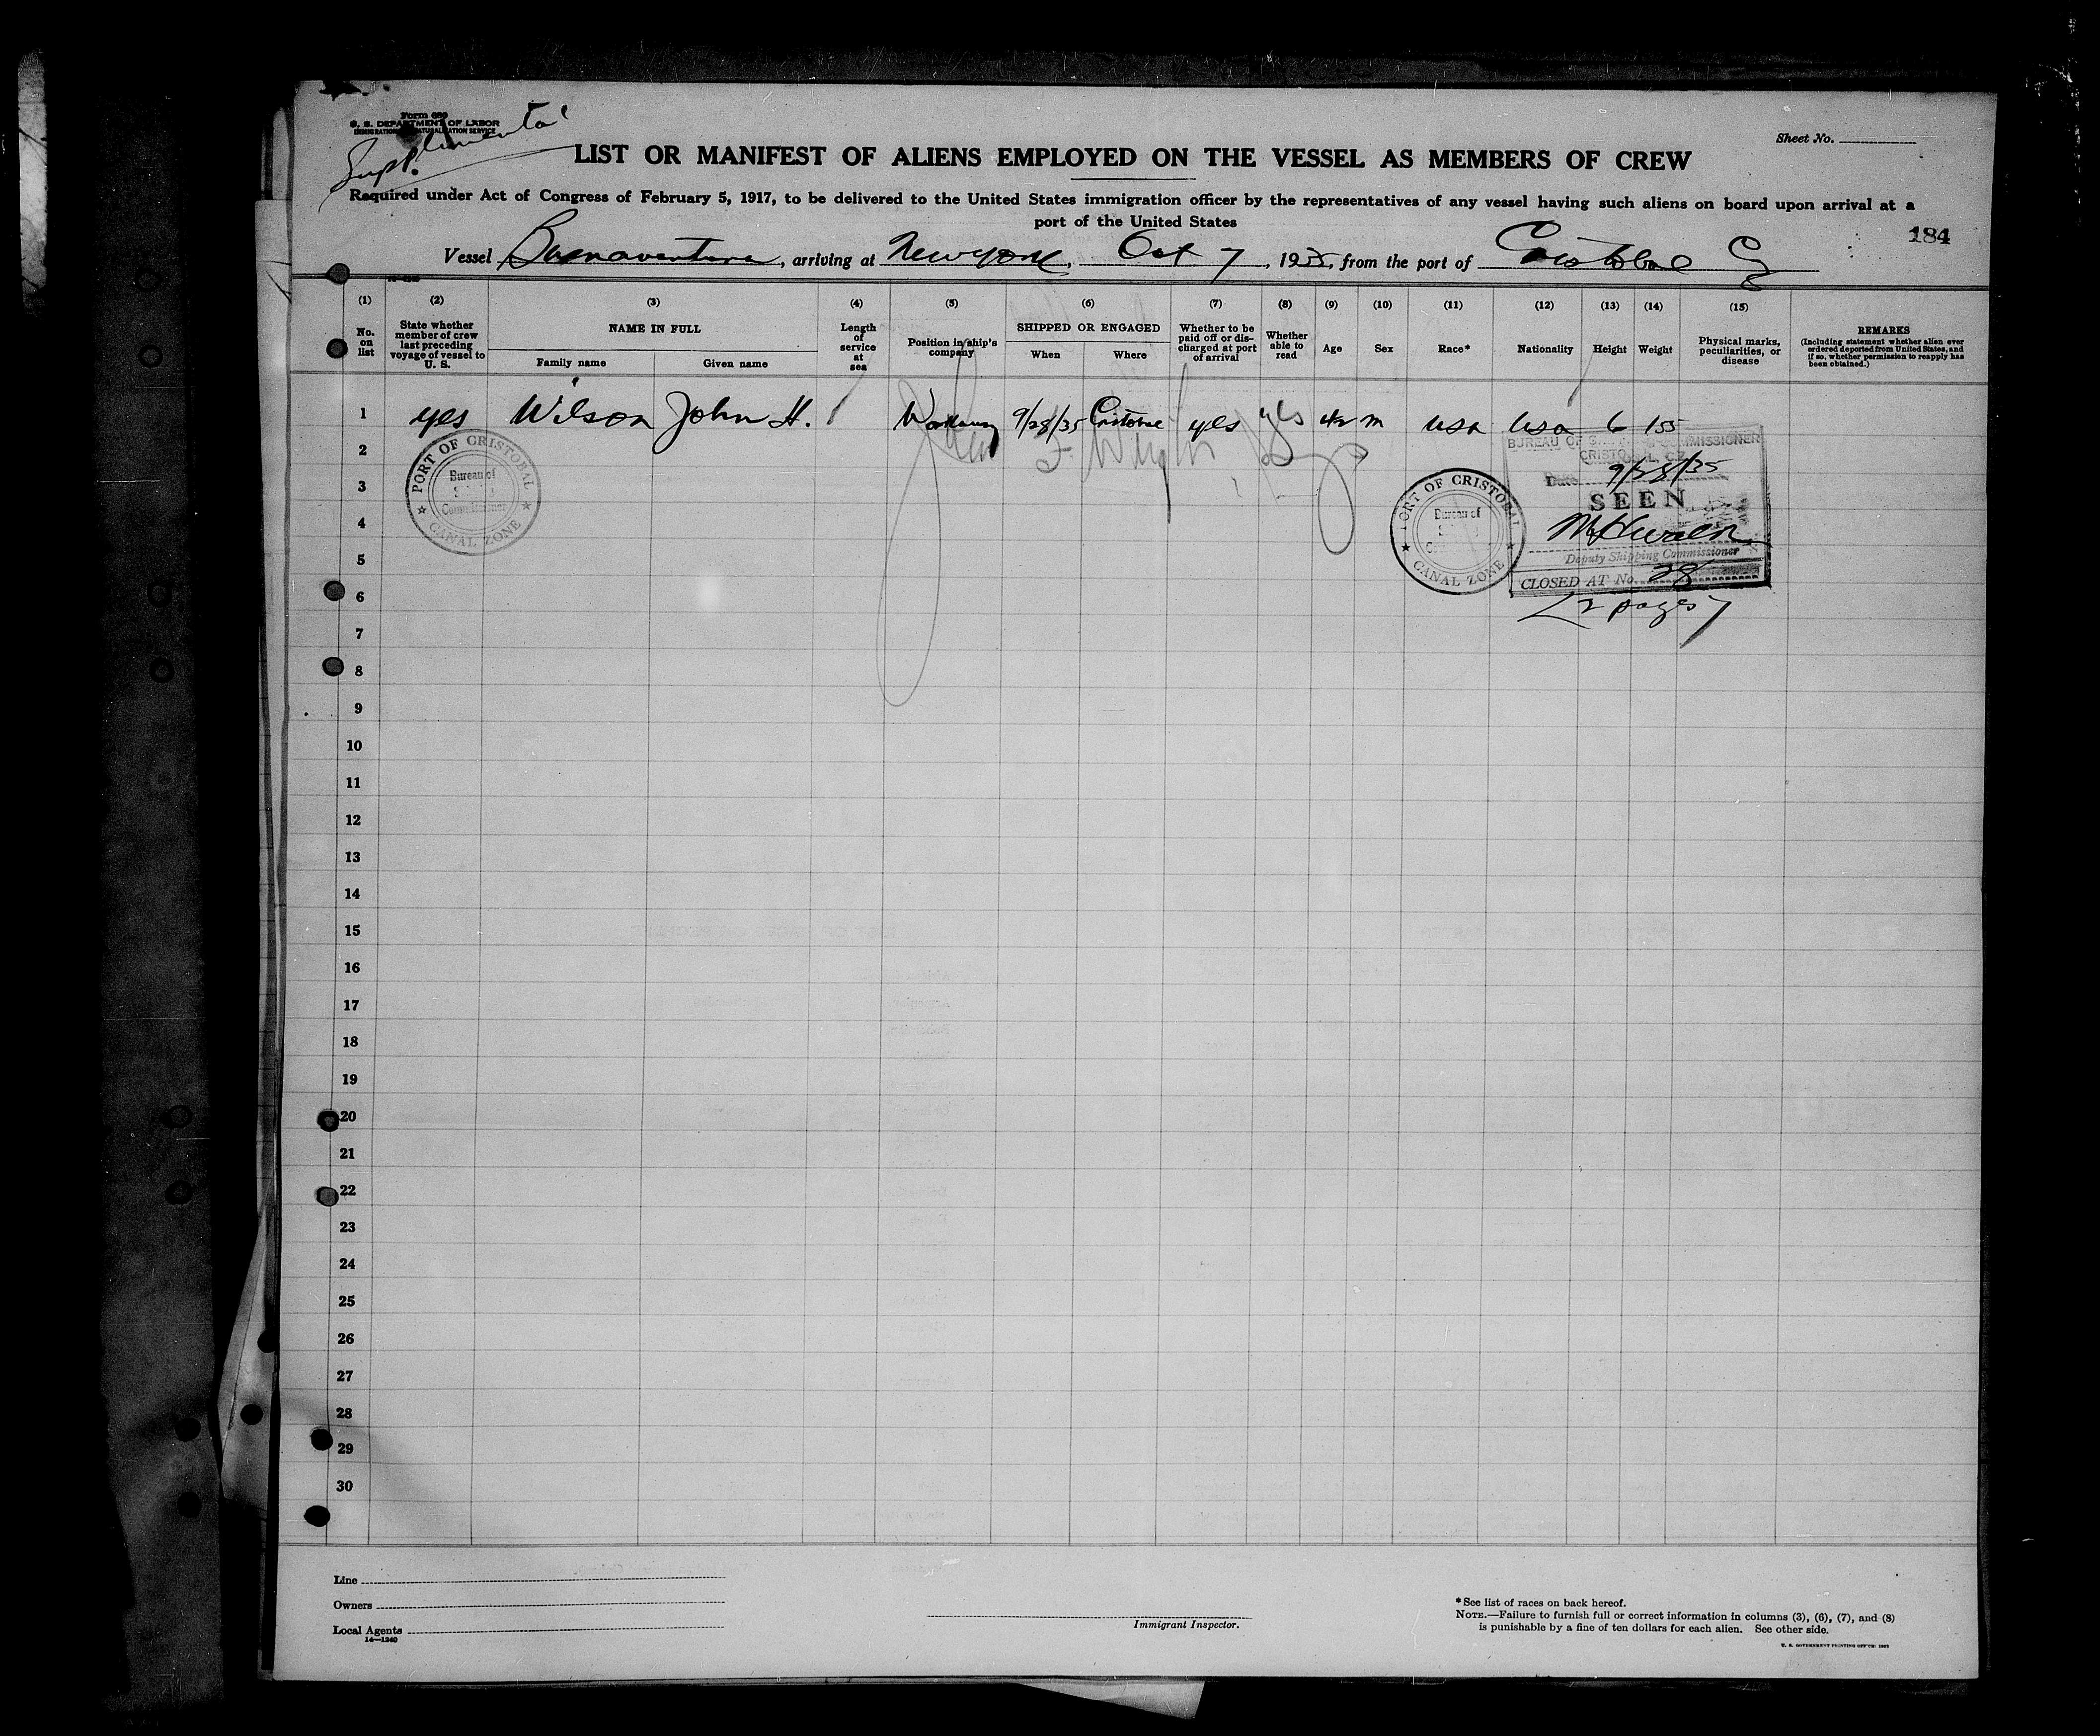 Form 680
U. S. DEPARTMENT OF LABOR
IMMIGRATION AND NATURALIZATION SERVICE
Supplimental
Sheet No.
LIST OR MANIFEST OF ALIENS EMPLOYED ON THE VESSEL AS MEMBERS OF CREW
Required under Act of Congress of February 5, 1917, to be delivered to the United States immigration officer by the representatives of any vessel having such aliens on board upon arrival at a
port of the United States
184
Vessel Buenaventura, arriving at New York, Oct 7, 1935, from the port of Cristobal CZ
(1) (2) (3) (4) (5) (6) (7) (8) (9) (10) (11) (12) (13) (14) (15)
No. on list
State whether member of crew last preceding voyage of vessel to U. S.
NAME IN FULL
Family name
Given name
Length of service at sea
Position in ship's company
SHIPPED OR ENGAGED
When
Where
Whether to be paid off or discharged at port of arrival
Whether able to read
Age
Sex
Race*
Nationality
Height
Weight
Physical marks, peculiarities, or disease
REMARKS
(Including statement whether alien ever ordered deported from United States, and if so, whether permission to reapply has been obtained.)
1 yes Wilson John H. Workaway 9/28/35 Cristobal yes yes 42 m usa usa 6 155
2
3
4
5
6
7
8
9
10
11
12
13
14
15
16
17
18
19
20
21
22
23
24
25
26
27
28
29
30
PORT OF CRISTOBAL
Bureau of
Commissioner
CANAL ZONE
PORT OF CRISTOBAL
Bureau of
CANAL ZONE
BUREAU OF COMMISSIONER
CRISTOBAL, C.Z.
Date 9/28/35
SEEN
Deputy Shipping Commissioner
CLOSED AT No. 28
2 pages
Line
Owners
Local Agents
14—1240
Immigrant Inspector.
* See list of races on back hereof.
NOTE.—Failure to furnish full or correct information in columns (3), (6), (7), and (8)
is punishable by a fine of ten dollars for each alien. See other side.
U. S. GOVERNMENT PRINTING OFFICE